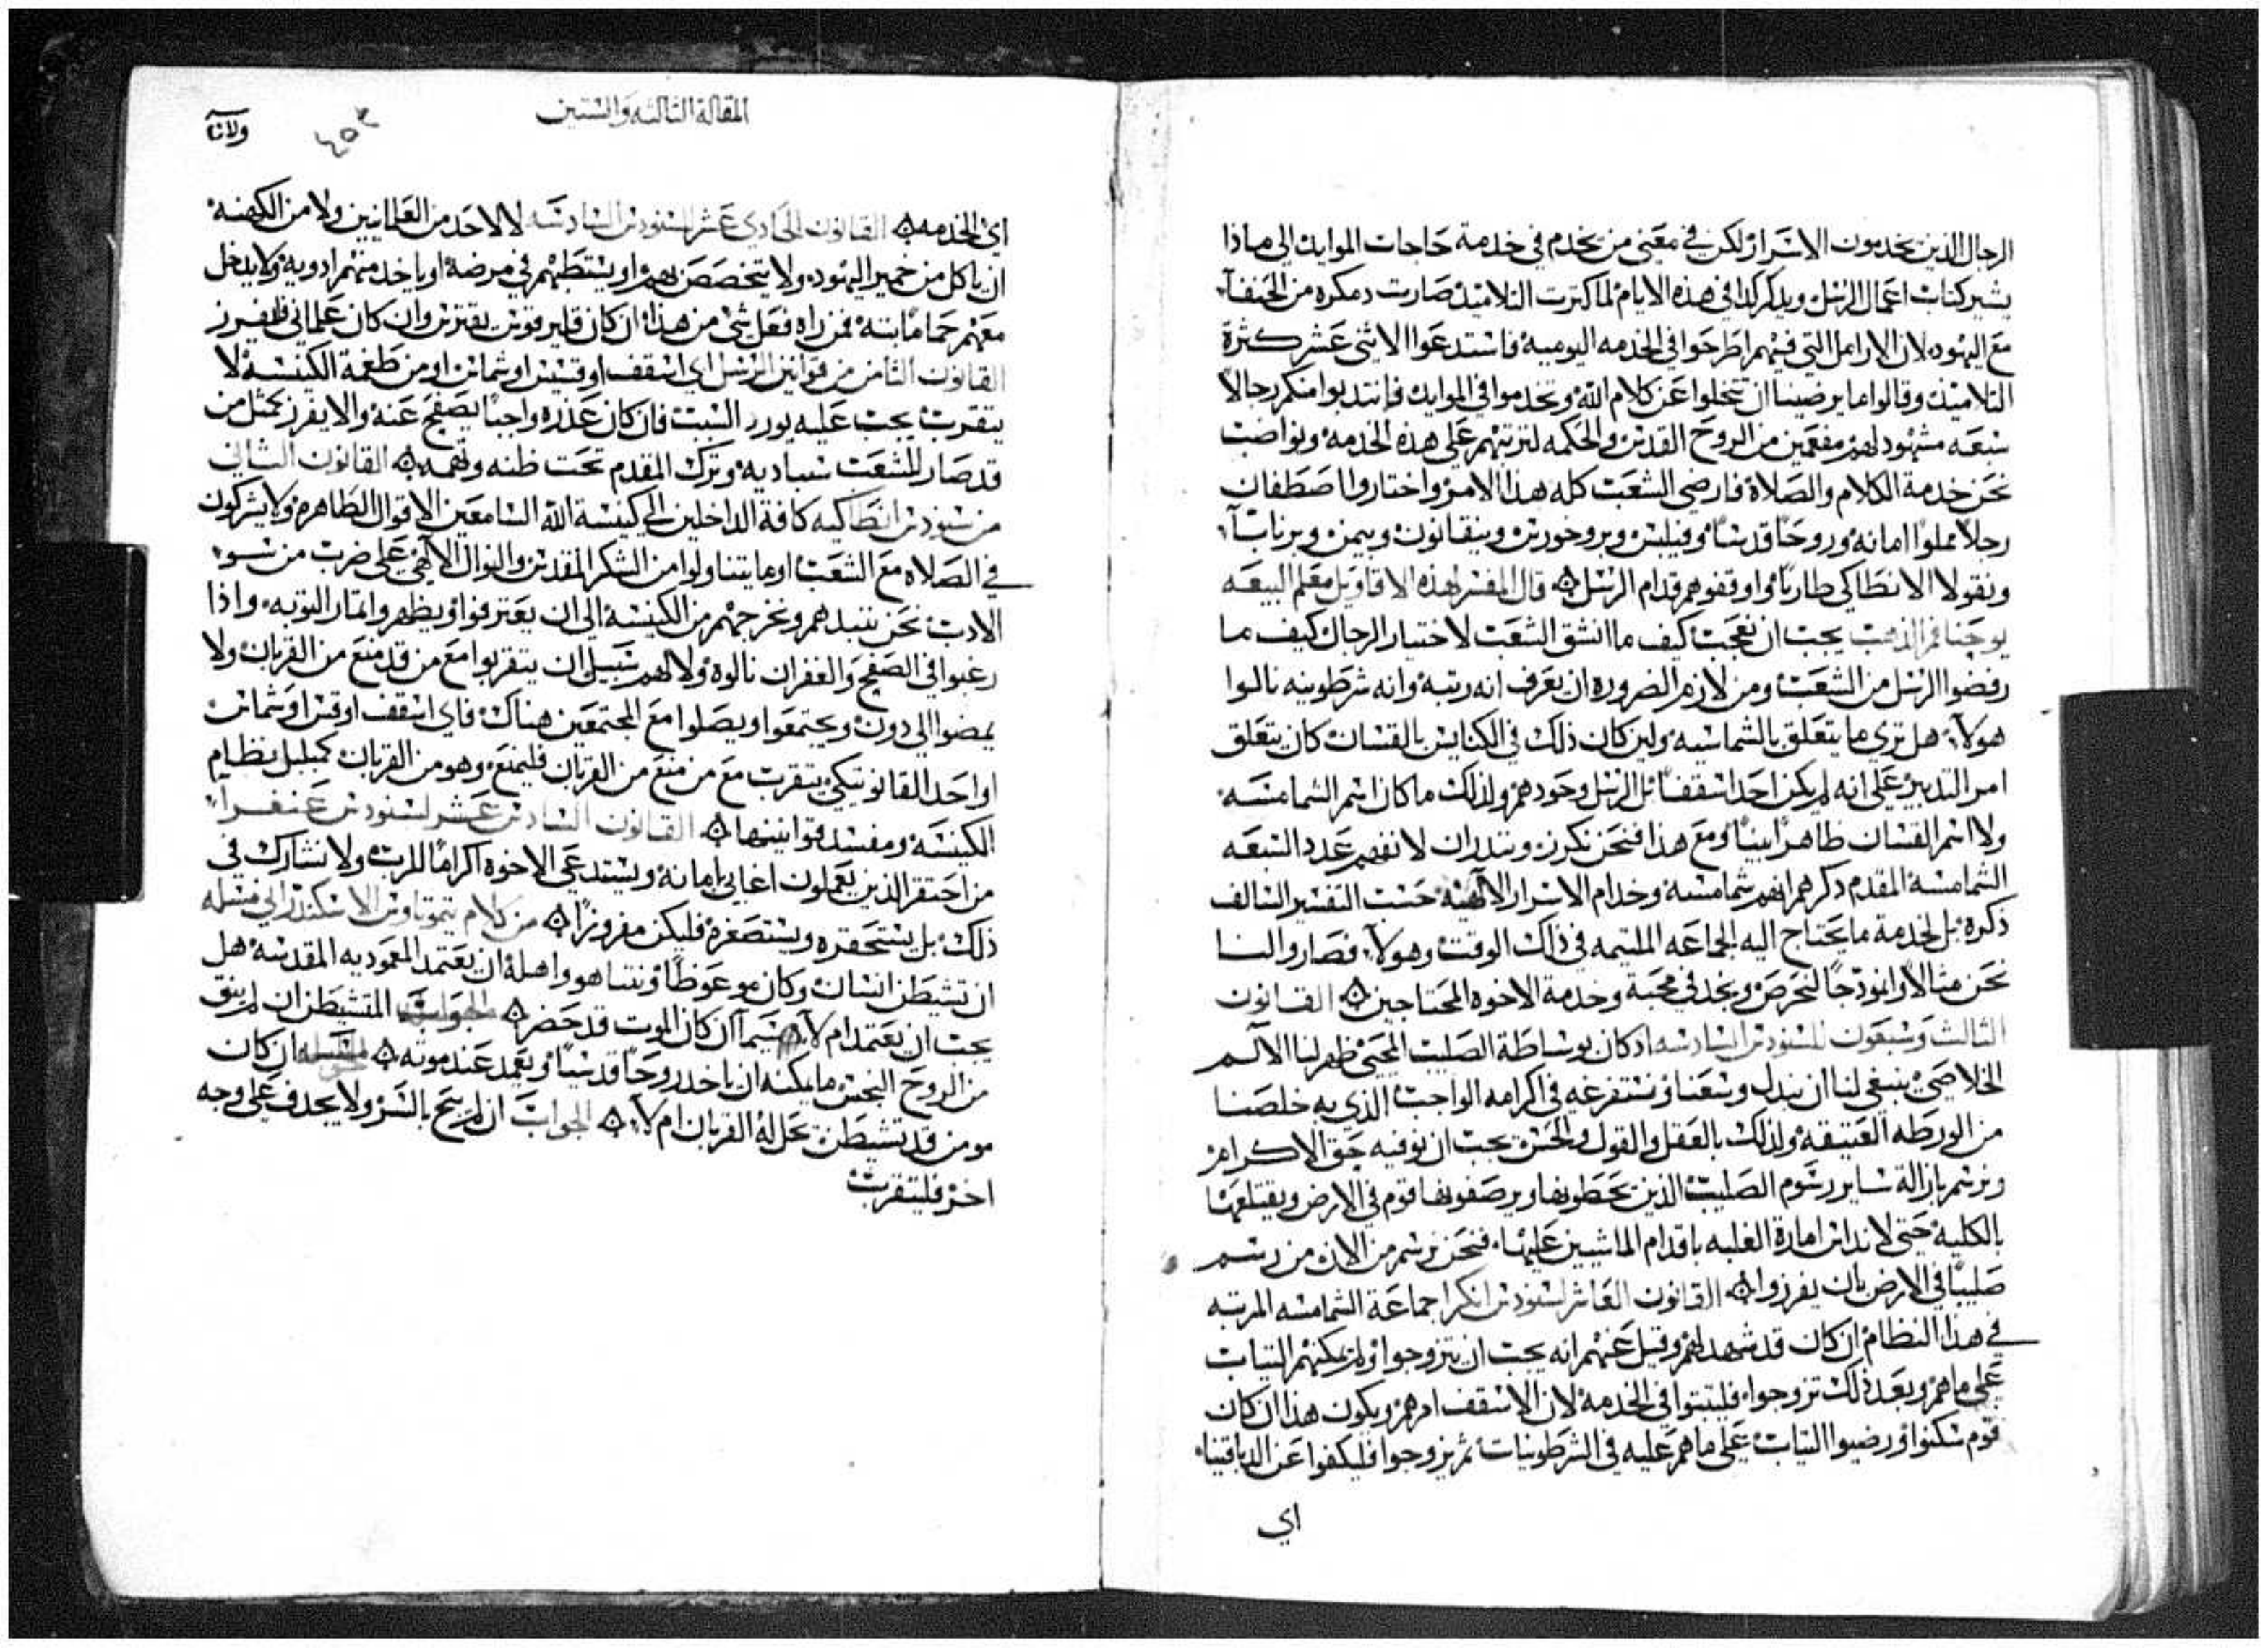 الرجال الذين يخدمون الاسرار لكن في معنى من يخدم في خدمة حاجات الموايد الى ماذا
يشير كتاب اعمال الرسل ويذكر كذا في هذه الايام لما كترت التلاميد صارت دمكره من الحنفآ
مع اليهود لان الارامل التي فيهم اطرحوا في الخدمه اليوميه فاستدعوا الاثنى عشر كثرة
التلاميد وقالوا ما يرضينا ان نتخلوا عن كلام الله ونخدموا في الموايد فانتدبوا منكم رجالاً
سبعه مشهود لهم مفعمين من الروح القدس والحكمه لنرتبهم على هذه الخدمه ونواضب
نحن خدمة الكلام والصلاة فارضى الشعب كله هذا الامر واختاروا اصطفان
رجلاً مملوا امانه وروحاً قدساً وفيلبس وبروخورس ونيقانون وبيمن وبرناباً
ونقولا الانطاكي طارياً واوقفوهم قدام الرسل قال المفسر لهذه الاقاويل معلم البيعه
يوحنا فم الذهب يجب ان نعجب كيف ما انشق الشعب لاختيار الرجال كيف ما
رفضوا الرسل من الشعب ومن لازم الضروره ان يعرف انه رتبة وانه شرطوينه نالوا
هولاء هل تري ما يتعلق بالشماسيه ولين كان ذلك في الكنايس بالقسان كان يتعلق
امر التدبير على انه لم يكن احد اسقفاً بل الرسل وحودهم ولذلك ما كان اسم الشمامسه
ولا اسم القسان ظاهراً بيناً ومع هذا فنحن نكرز وننذر ان لا نفهم عدد السبعه
الشمامسة المقدم ذكرهم انهم شمامسة وخدام الاسرار الالهيه حسب التفسير السالف
ذكره بل لخدمة ما يحتاج اليه الجماعه الملتيمه في ذاك الوقت وهولآ فصاروا لنا
نحن مثالاً وانموذجاً لنحرص ونجد في محبة وخدمة الاخوه المحتاجين القانون
الثالث وسبعون للسنودس السادسه اذ كان بوساطة الصليب المحيي ظهر لنا الالم
الخلاصي ينبغي لنا ان نبدل وسعنا ونستفرغه في اكرامه الواجب الذي به خلصنا
من الورطه العتيقه ولذلك بالعقل والقول والحس يجب ان نوفيه حق الاكرام
ونرسم بازالة ساير رسوم الصليب الذين يخطونها ويرصفونها قوم في الارض ويقتلعها
بالكلية حتى لا نداس امارة الغلبه باقدام الماشيين عليها فنحن نرسم من الان من رسم
صليباً في الارض بان يفرزوا القانون العاشر لسنودس انكرا جماعة الشمامسه المرتبه
في هذا النظام ان كان قد شهد لهم وقيل عنهم انه يجب ان يتزوجوا ولم يمكنهم التبات
على ماهم وبعد ذلك تزوجوا فليتبتوا في الخدمه لان الاسقف امرهم ويكون هذا ان كان
قوم سكتوا ورضيوا التبات على ماهم عليه في الشرطونيات ثم يزوجوا فليكفوا عن الدياقنيا
اي
المقالة الثالثه والستين
ولانا
٤٥٣
اي الخدمه القانون الحادي عشر للسنودس السادسه لا لاحد من العلمانيين ولا من الكهنه
ان ياكل من خمير اليهود ولا يتخصص بهم او يستطبهم في مرضه او ياخد منهم ادويه ولا يدخل
معهم حماماً بته فمن راه فعل شي من هذا ان كان قليرقوس يقترس وان كان علماني فليفرز
القانون الثامن من قوانين الرسل اي اسقف او قسيس او شماس او من طغمة الكنيسة لا
يتقرب يجب عليه يورد السبب فان كان عذره واجباً يصفح عنه والا يفرز كمثل من
قد صار للشعب سبباً ديه وترك المقدم تحت ظنه وتهمه القانون الثاني
من سنودس انطاكيه كافة الداخلين الى كنيسة الله السامعين الاقوال الطاهره ولا يشركون
في الصلاه مع الشعب او ما يتناولوا من الشكر المقدس والنوال الالهي على ضرب من سوء
الادب نحن ننبدهم ونخرجهم من الكنيسة الى ان يعترفوا ويظهروا اتمار التوبه واذا
رغبوا في الصفح والغفران نالوه ولا لهم سبيل ان يتقربوا مع من قد منع من القربان ولا
يمضوا الى دون ويجتمعوا ويصلوا مع المجتمعين هناك فاي اسقف او قس او شماس
او احد القانونيكي يتقرب مع من منع من القربان فليمنع وهو من القربان كمبلبل نظام
الكنيسه ومفسد قوانينها القانون السادس عشر لسنودس غنغرا
من احتقر الذين يعملون اغابي بامانه ويستدعي الاخوه اكراماً للرب ولا نشارك في
ذلك بل يستحقره ويستصغره فليكن مفروزاً من كلام تيموتاوس الاسكندراني مسله
ان تشيطن انسان وكان موعوظاً ونتنا هو واهله ان يعتمد المعموديه المقدسه هل
يجب ان يعتمد ام لا سيما ان كان الموت قد حضر الجواب المتشيطن ان لم ينق
من الروح النجس ما يمكنه ان ياخد روحاً قدسياً ويعمد عند موته مسله ان كان
مومن قد تشيطن تحل له القربان ام لا الجواب ان لم يبح بالسر ولا يجدف على وجه
اخر فليتقرب